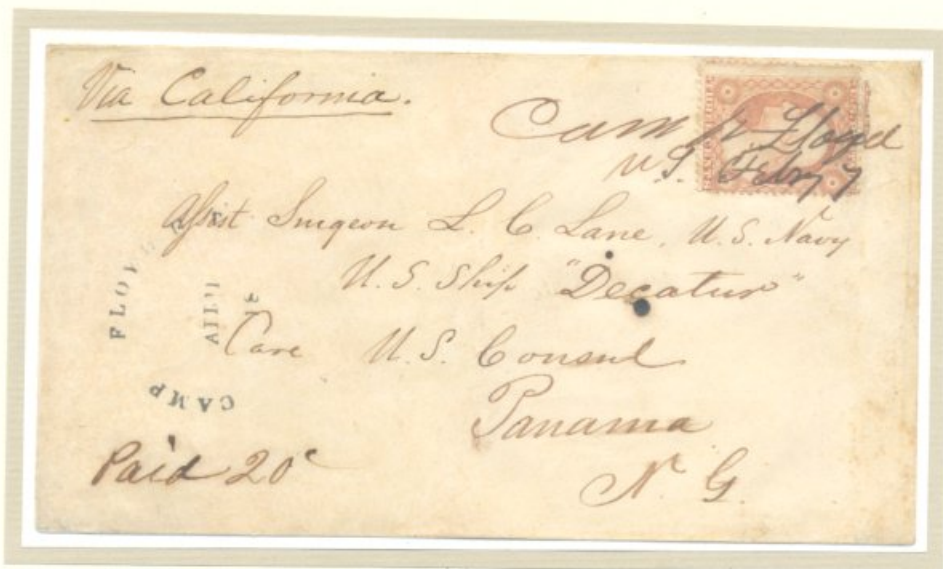 Via California.
Camp Floyd
U.S. Feby 7
Asst Surgeon L. C. Lane, U.S. Navy
U.S. Ship "Decatur"
Care U.S. Consul
Panama
N. G.
Paid 20c
CAMP FLO